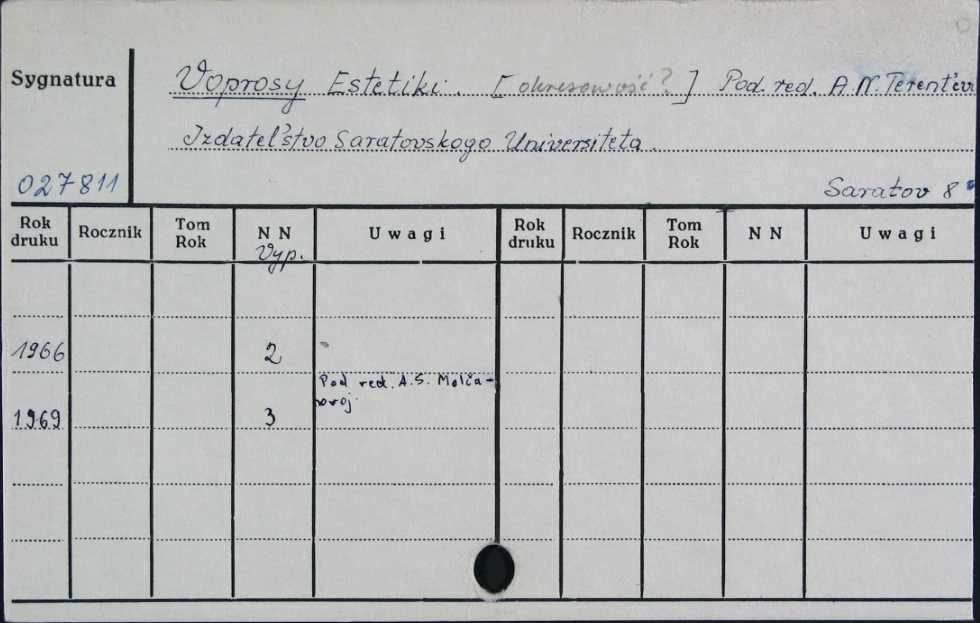 Sygnatura
Voprosy Estetiki. [okresowość?] Pod. red. A. N. Terent'ev
Izdatel'stvo Saratovskogo Universiteta.
027811
Saratov 8°
Rok druku Rocznik Tom Rok NN Uwagi Rok druku Rocznik Tom Rok NN Uwagi
Vyp.
1966 2
Pod red. A.S. Molča-
1969 3